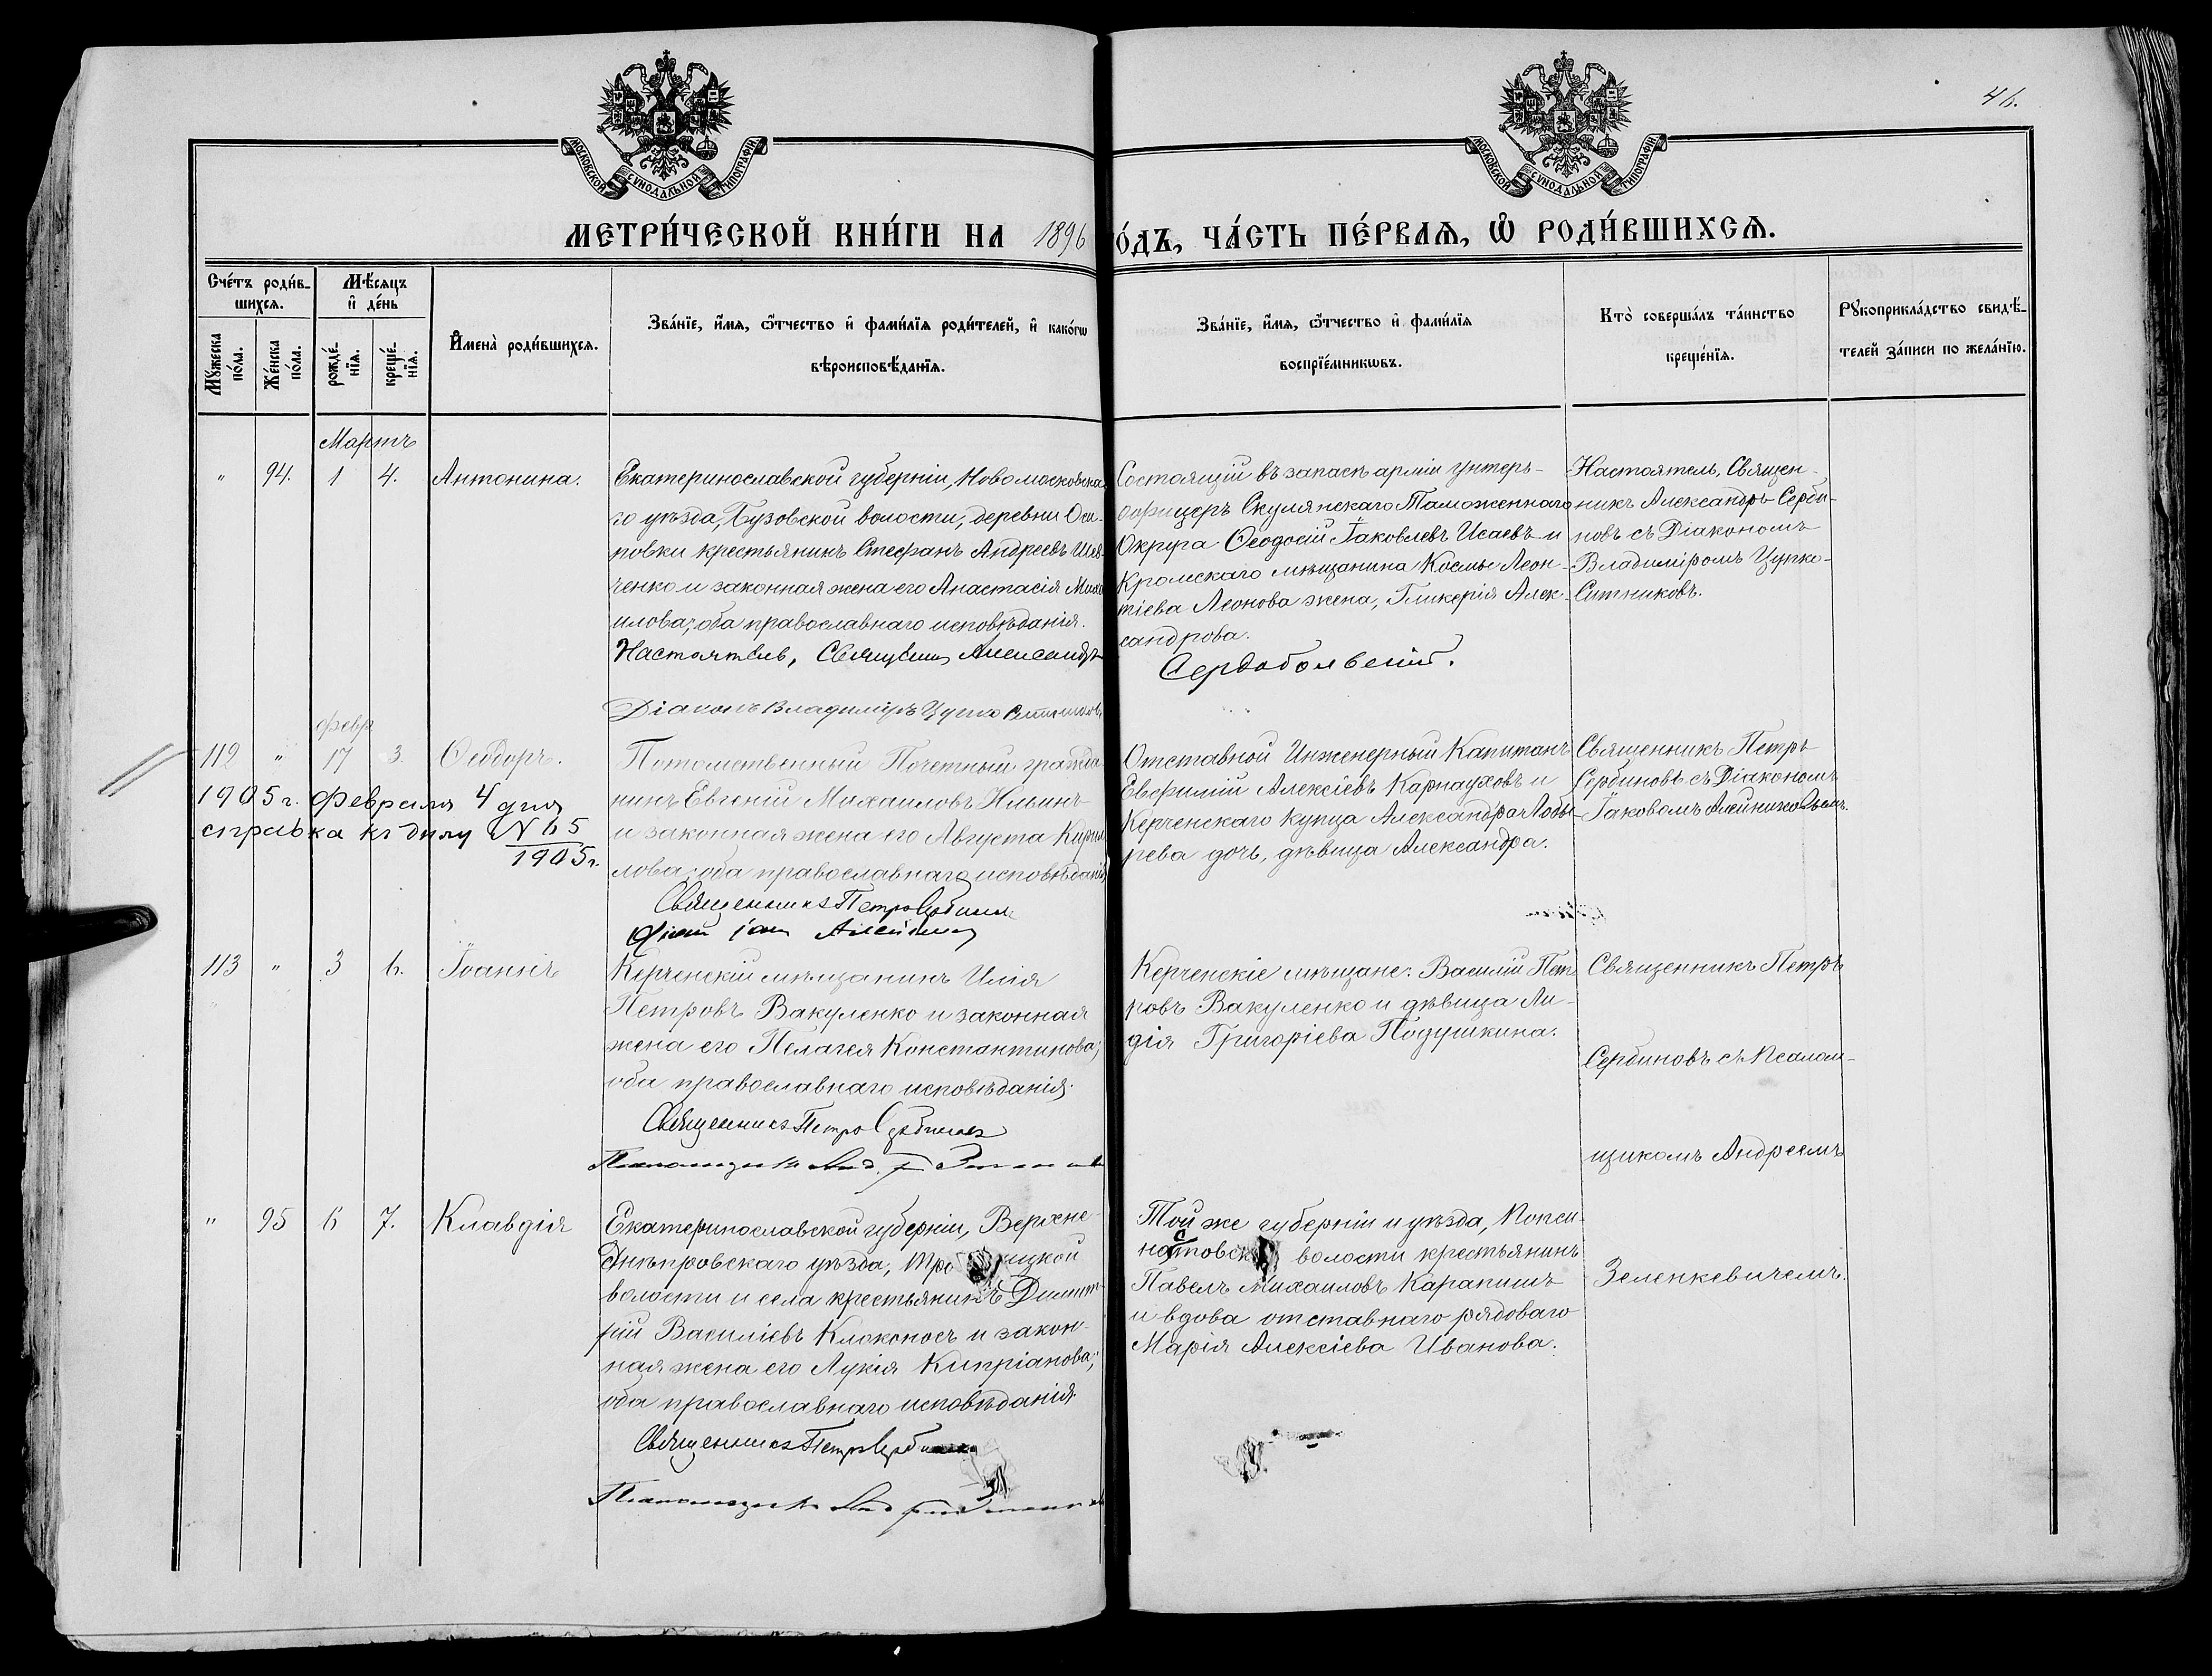 46.
МОСКОВСКОЙ СѴНОДАЛЬНОЙ ТИПОГРАФІИ
МОСКОВСКОЙ СѴНОДАЛЬНОЙ ТИПОГРАФІИ
МЕТРИ́ЧЕСКОЙ КНИ́ГИ НА 1896 О́ДЪ, ЧА́СТЬ ПЕ́РВАѦ, Ѿ РОДИ́ВШИХСѦ.
Сче́тъ роди́в-
шихсѧ.
Мꙋжеска по́ла.
Же́нска по́ла.
Мѣ́сяцъ
и҆ де́нь
рожде́-нїѧ.
креще́-нїѧ.
И҆мена̀ роди́вшихсѧ.
Зва́нїе, и҆́мѧ, ѻ҆́тчество и҆ фами́лїѧ роди́телей, и҆ како́гѡ
вѣроисповѣ́данїѧ.
Зва́нїе, и҆́мѧ, ѻ҆́тчество и҆ фами́лїѧ
воспрїе́мникѡвъ.
Кто̀ соверша́лъ та́инство
креще́нїѧ.
Рꙋкоприкла́дство свидѣ́-
телей за́писи по жела́нїю.
Мартъ
" 94. 1 4. Антонина.
Екатеринославской губерніи, Новомосковска
го уѣзда, Бузовской волости, деревни Оси-
повки крестьянинъ Стефанъ Андреевъ Шев
ченко и законная жена его Анастасія Миха
илова, оба православнаго исповѣданія.
Настоятель, Священникъ Александръ
Сердобольскій.
Діаконъ Владиміръ Цупко Ситниковъ
Состоящій въ запасѣ арміи унтеръ-
офицеръ Скулянскаго Таможеннаго
Округа Ѳеодосій Іаковлевъ Исаевъ и
Кромскаго мѣщанина Космы Леон-
тіева Леонова жена, Гликерія Алек-
сандрова.
Настоятель, Священ-
никъ Александръ Серби-
новъ съ Діакономъ
Владиміромъ Цупко-
Ситниковъ.
февр
112 " 17 3. Ѳеодоръ.
1905 г. Февраля 4 дня
справка къ дѣлу № 65
1905 г.
Потомственный Почетный гражда
нинъ Евгеній Михаиловъ Ильинъ
и законная жена его Августа Кирил
лова; оба православнаго исповѣданія
Священникъ Петръ Сербиновъ
Отставной Инженерный Капитанъ
Евфимій Алексіевъ Карнауховъ и
Керченскаго купца Александра Лоды-
рева дочь, дѣвица Александра.
Священникъ Петръ
Сербиновъ съ Діакономъ
Іаковомъ Алейниковымъ.
113 " 3 6. Іоаннъ
Керченскій мѣщанинъ Илія
Петровъ Вакуленко и законная
жена его Пелагея Константинова;
оба православнаго исповѣданія.
Священникъ Петръ Сербиновъ
Керченскіе мѣщане: Василій Пет
ровъ Вакуленко и дѣвица Ли-
дія Григоріева Подушкина.
Священникъ Петръ
Сербиновъ съ Псалом-
щикомъ Андреемъ
Зеленкевичемъ.
" 95 6 7. Клавдія
Екатеринославской губерніи, Верхне-
Днѣпровскаго уѣзда,
волости и села крестьянинъ Димит-
рій Василіевъ Клоконосъ и закон-
ная жена его Лукія Кипріанова;
оба православнаго исповѣданія.
Священникъ Петръ Сербиновъ
Той же губерніи и уѣзда,
волости крестьянинъ
Павелъ Михаиловъ Карапишъ
и вдова отставнаго рядоваго
Марія Алексіева Иванова.